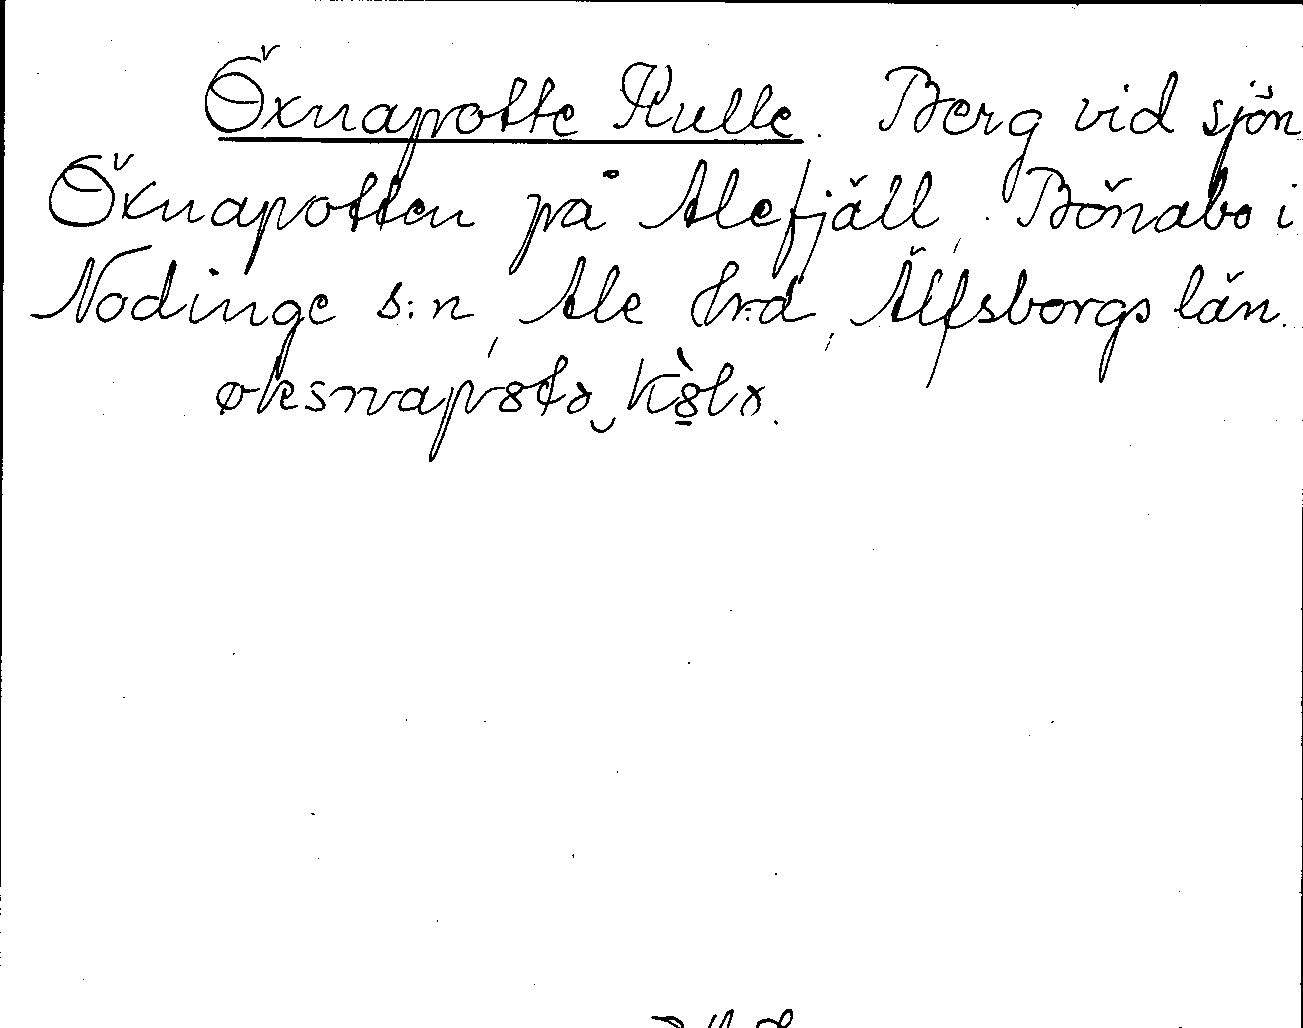 Öxnapotte Kulle. Berg vid sjön
Öxnapotten på Alefjäll. Bönabo i
Nödinge s:n, Ale hrd, Älfsborgs län.